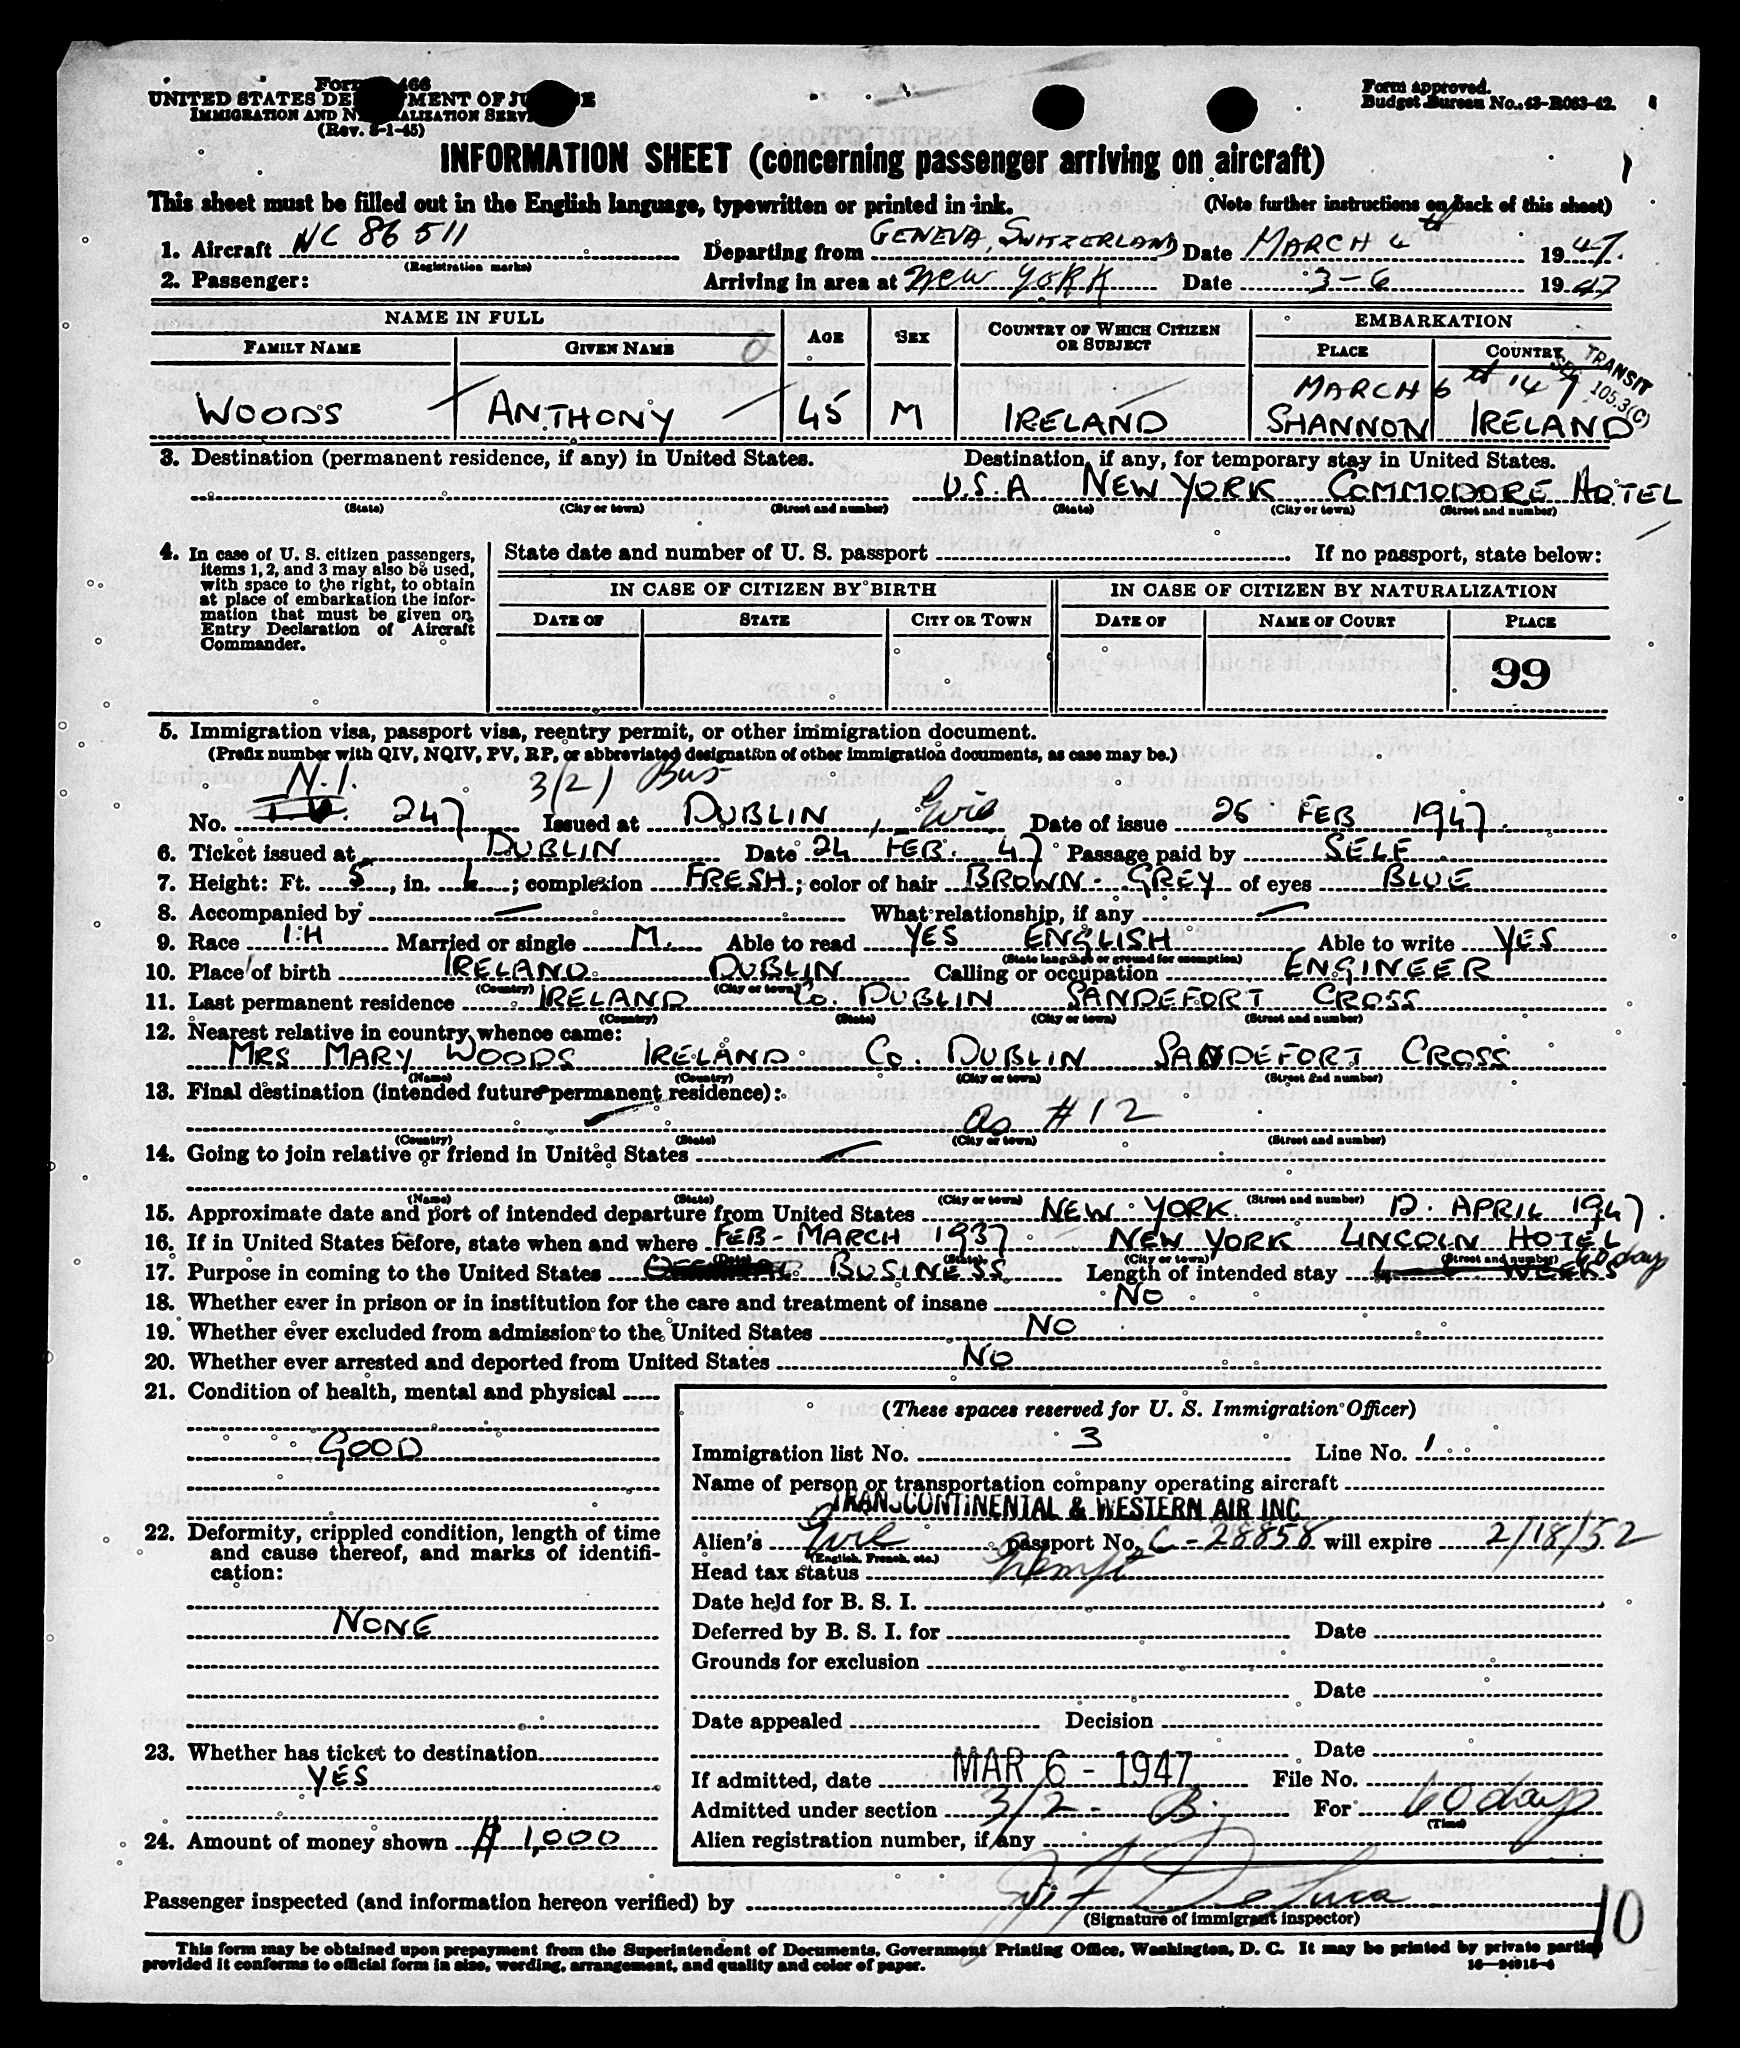 Form 466
UNITED STATES DEPARTMENT OF JUSTICE
IMMIGRATION AND NATURALIZATION SERVICE
(Rev. 8-1-45)
Form approved.
Budget Bureau No. 43-R083-42.
INFORMATION SHEET (concerning passenger arriving on aircraft)
This sheet must be filled out in the English language, typewritten or printed in ink. (Note further instructions on back of this sheet)
1. Aircraft NC 86511 Departing from GENEVA, SWITZERLAND Date MARCH 4th 1947.
(Registration marks)
2. Passenger: Arriving in area at NEW YORK Date 3-6 1947
NAME IN FULL AGE SEX COUNTRY OF WHICH CITIZEN OR SUBJECT EMBARKATION
FAMILY NAME GIVEN NAME PLACE COUNTRY
TRANSIT
SEC 105.3(C)
MARCH 6th 147
WOODS ANTHONY 45 M IRELAND SHANNON IRELAND
3. Destination (permanent residence, if any) in United States. Destination, if any, for temporary stay in United States.
U.S.A NEW YORK COMMODORE HOTEL
(State) (City or town) (Street and number) (State) (City or town) (Street and number)
4. In case of U. S. citizen passengers, items 1, 2, and 3 may also be used, with space to the right, to obtain at place of embarkation the information that must be given on Entry Declaration of Aircraft Commander.
State date and number of U. S. passport If no passport, state below:
IN CASE OF CITIZEN BY BIRTH IN CASE OF CITIZEN BY NATURALIZATION
DATE OF STATE CITY OR TOWN DATE OF NAME OF COURT PLACE
99
5. Immigration visa, passport visa, reentry permit, or other immigration document.
(Prefix number with QIV, NQIV, PV, RP, or abbreviated designation of other immigration documents, as case may be.)
N.I. 3/2) Bus
No. 247 Issued at DUBLIN, Eire Date of issue 25 FEB 1947.
6. Ticket issued at DUBLIN Date 24 FEB. 47 Passage paid by SELF
7. Height: Ft. 5, in. 6; complexion FRESH; color of hair BROWN-GREY of eyes BLUE
8. Accompanied by — What relationship, if any —
9. Race I.H Married or single M. Able to read YES ENGLISH Able to write YES
(State language or ground for exemption)
10. Place of birth IRELAND DUBLIN Calling or occupation ENGINEER
(Country) (City or town)
11. Last permanent residence IRELAND Co. DUBLIN SANDEFORT CROSS
(Country) (State) (City or town) (Street and number)
12. Nearest relative in country whence came:
MRS MARY WOODS IRELAND Co. DUBLIN SANDEFORT CROSS
(Name) (Country) (City or town) (Street and number)
13. Final destination (intended future permanent residence):
as #12
(Country) (State) (City or town) (Street and number)
14. Going to join relative or friend in United States —
(Name) (State) (City or town) (Street and number)
15. Approximate date and port of intended departure from United States NEW YORK. 12. APRIL 1947.
16. If in United States before, state when and where FEB-MARCH 1937 NEW YORK LINCOLN HOTEL
(Date) (State) (City or town) (Street and number)
17. Purpose in coming to the United States BUSINESS Length of intended stay WEEKS 60 days
18. Whether ever in prison or in institution for the care and treatment of insane NO
19. Whether ever excluded from admission to the United States NO
20. Whether ever arrested and deported from United States NO
21. Condition of health, mental and physical
GOOD
22. Deformity, crippled condition, length of time and cause thereof, and marks of identification:
NONE
23. Whether has ticket to destination
YES
24. Amount of money shown $ 1,000
(These spaces reserved for U. S. Immigration Officer)
Immigration list No. 3 Line No. 1
Name of person or transportation company operating aircraft
TRANSCONTINENTAL & WESTERN AIR INC
Alien's Eire passport No. C-28858 will expire 2/18/52
(English, French, etc.)
Head tax status Exempt
Date held for B. S. I.
Deferred by B. S. I. for Date
Grounds for exclusion
Date
Date appealed Decision
Date
If admitted, date MAR 6 - 1947 File No.
Admitted under section 3/2 - B. For 60 days
(Time)
Alien registration number, if any
Passenger inspected (and information hereon verified) by
(Signature of immigrant inspector)
10
This form may be obtained upon prepayment from the Superintendent of Documents, Government Printing Office, Washington, D. C. It may be printed by private parties
provided it conforms to official form in size, wording, arrangement, and quality and color of paper.
16—24915-4